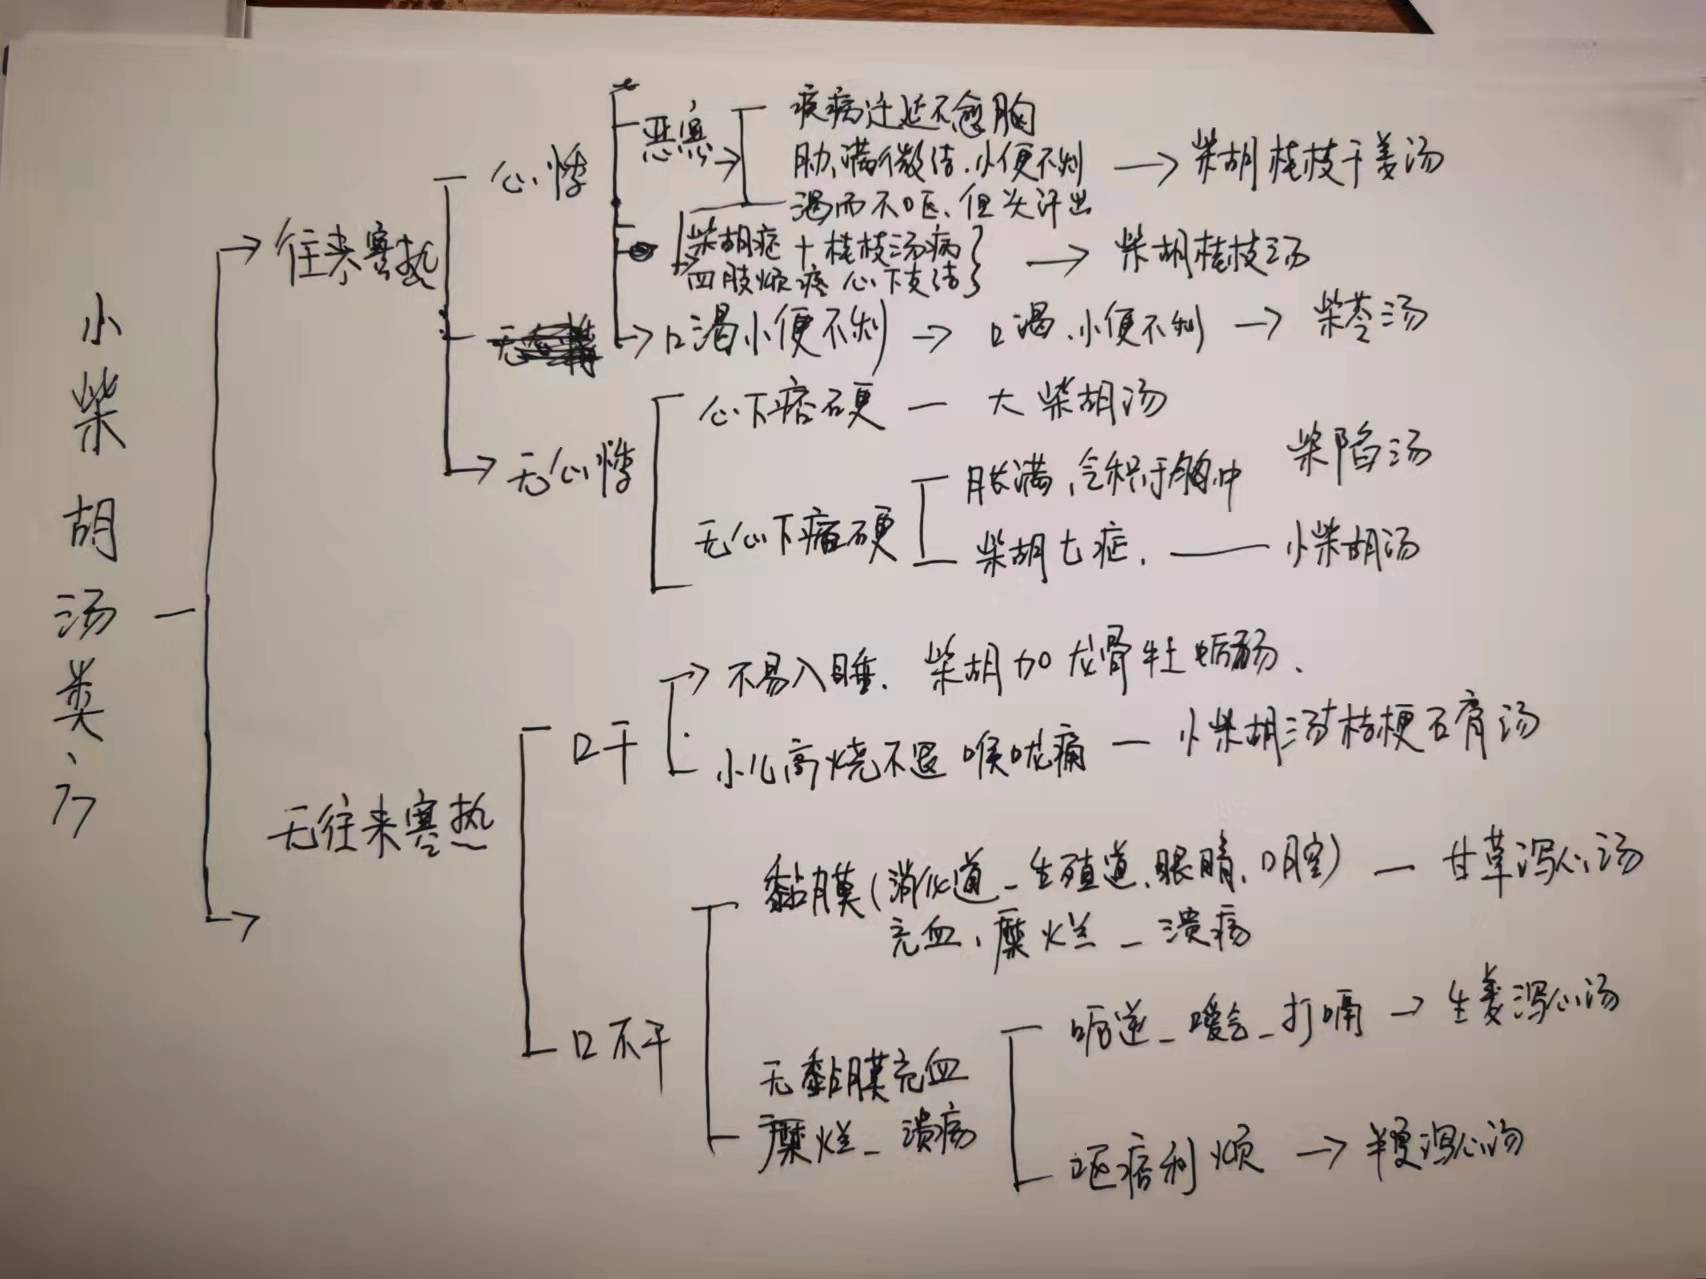 小柴胡汤类方
往来寒热
心悸
恶寒
疾病迁延不愈胸
胁满微结.小便不利
渴而不呕、但头汗出
柴胡桂枝干姜汤
柴胡症+桂枝汤病
四肢烦疼 心下支结
柴胡桂枝汤
口渴小便不利
口渴.小便不利
柴苓汤
无
无心悸
心下痞硬
大柴胡汤
无心下痞硬
胀满,气积于胸中
柴陷汤
柴胡七症.
小柴胡汤
无往来寒热
口干
不易入睡.
柴胡加龙骨牡蛎汤.
小儿高烧不退 喉咙痛
小柴胡汤+桔梗石膏汤
口不干
黏膜(消化道_生殖道、眼睛、口腔)
充血、糜烂_溃疡
甘草泻心汤
无黏膜充血
糜烂_溃疡
呃逆_嗳气_打嗝
生姜泻心汤
呕痞利烦
半夏泻心汤